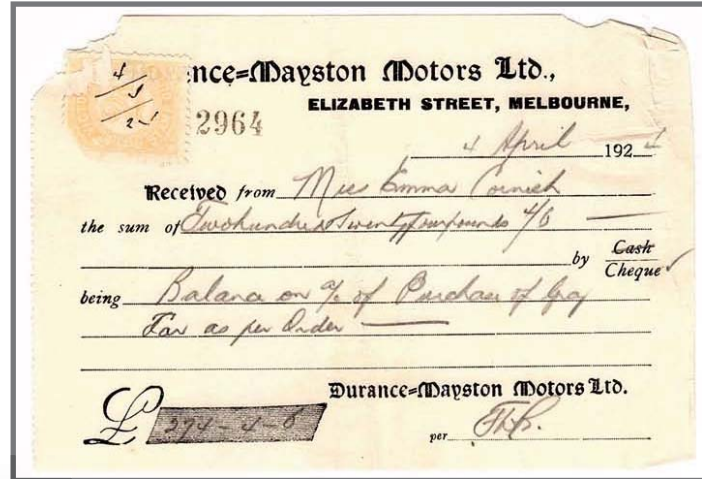 nce=Mayston Motors Ltd.,
ELIZABETH STREET, MELBOURNE,
2964
4 April 192
Received from Miss Emma Cornish
the sum of Twohundred &twentyfourpounds 4/6
by Cash
Cheque
being Balance on a/c of Purchase of Gray
Car as per Order
Durance=Mayston Motors Ltd.
£ 4-6
per